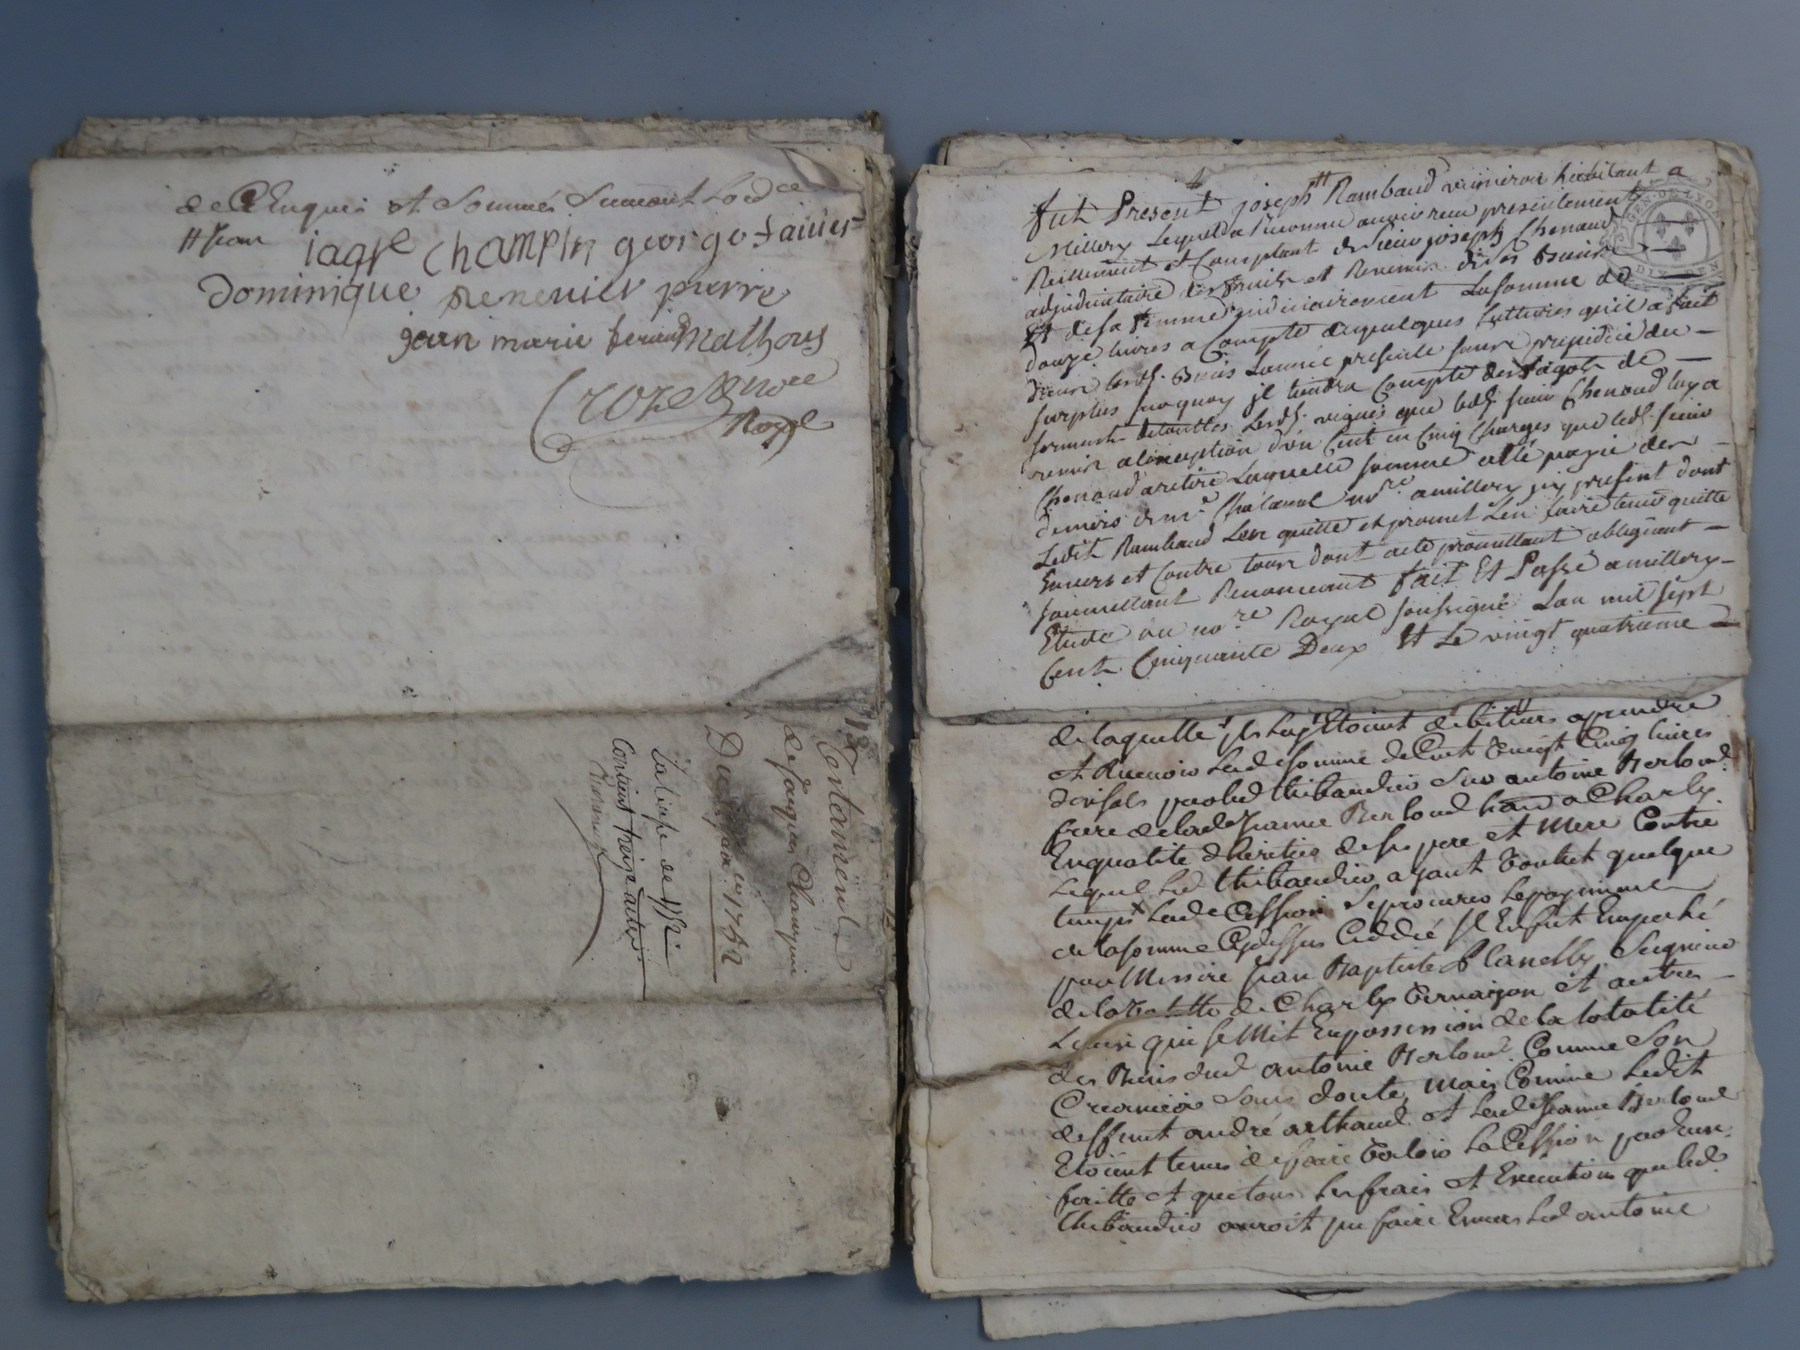 de Ce Enquis et Sommés Suivant Lord.ce
iaqve Champin george faivier
Dominique pierre
jean marie
Croze Nore
Royal
Testament
de Jacques Champin
Du janv.er 1752
La liasse de 1752
Contient treize actes
fut Present joseph Rambaud vigneron habitant a
Millery Lequel a reconnu avoir receu presentement
Reellement et Comptant de Sieur joseph Chenaud
adjudicataire des fruits et Revenus de ses Biens
Et de sa femme judiciairement La somme de
douze livres a Compte de quelques qu'il a fait
dans lesd. Biens L'année presente sans prejudice du
surplus sur quoy il tiendra Compte des fagots de
Lesd. vignes que led. sieur Chenaud luy a
remis a l'exception d'un Cent en Cinq Charges que led. sieur
Chenaud a retiré Laquelle somme a été payée des
deniers de M.e nore a millery icy present dont
Ledit Rambaud L'en quitte et promet L'en faire tenir quitte
Envers et Contre tous dont acte promettant obligeant
soumettant Renonceant fait Et Passé a millery
Etude du no.re Royal soussigné Lan mil sept
Cent Cinquante Deux Et Le vingt quatrieme
de laquelle ils luy Etoient debiteurs a prendre
et Recevoir Lade somme de Cent vingt Cinq livres
par led thibaudier Sur antoine Berloud
frere de lade Jeanne Berloud hant a Charly
En qualité d'heritier de ses pere et Mere Contre
Lequel Led thibaudier ayant voulut quelque
temps Lade Cession se procurer Le payement
de la somme Cydessus Ceddée Il En fut Empeché
par Messire Jean Baptiste Planelly Seigneur
de la valette de Charly vernaizon et autres
Lieux qui se Mit En possession de la totalité
des Biens dud antoine Berloud Comme Son
Creancier Sans doute, Mais Comme Ledit
deffunt andré arthaud et Lade Jeanne Berloud
Etoient tenus de faire valoir La Cession par Eux
faitte et que tous Les frais et Executions que led
thibaudier auroit pu faire Envers Led antoine